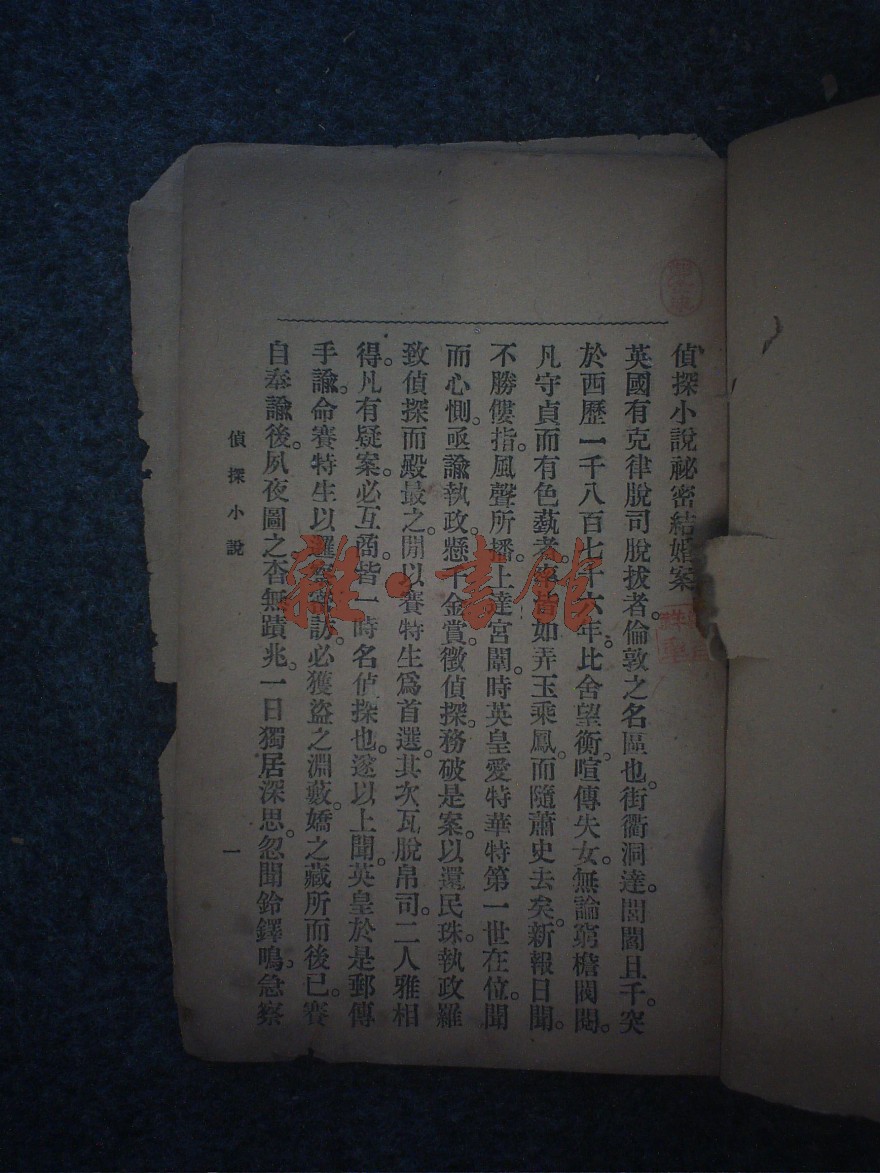 偵探小說祕密結婚案
英國有克律脫司脫拔者。倫敦之名區也。街衢洞達。閭閻且千。突
於西歷一千八百七十六年。比舍望衡。喧傳失女。無論窮檐閥閱。
凡守貞而有色藝者。皆如弄玉乘鳳。而隨蕭史去矣。新報日聞。
不勝僂指。風聲所播。上達宮闈。時英皇愛特華特第一世在位。聞
而心惻。亟諭執政。懸千金賞。徵偵探。務破是案。以還民珠。執政羅
致偵探而殿最之。閒以賽特生爲首選。其次瓦脫帛司。二人雅相
得。凡有疑案。必互商。皆一時名偵探也。遂以上聞。英皇於是郵傳
手諭。命賽特生以邏察訪。必獲盜之淵藪。嬌之藏所而後已。賽
自奉諭後。夙夜圖之。杳無蹟兆。一日獨居深思。忽聞鈴鐸鳴。急察
偵探小說
一
雜·書館